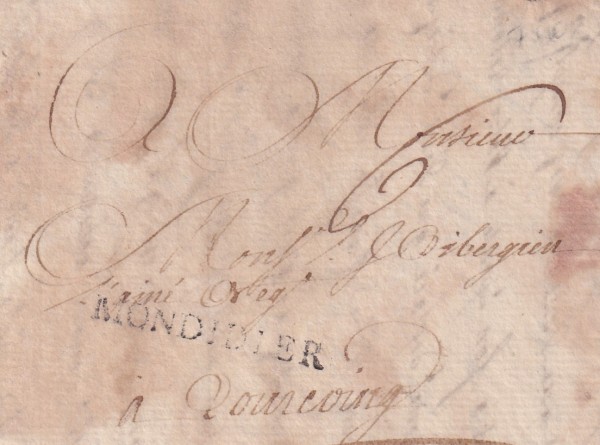 A Monsieur
Mons.r J. J Debergien
l'ainé Neg.t
MONDIDIER
à Tourcoing